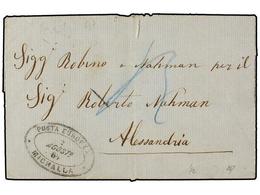 Sigg Robino e Nahman per il
Sig Roberto Nahman
Alessandria
POSTA EUROPEA
AGOSTO
MICHALLA